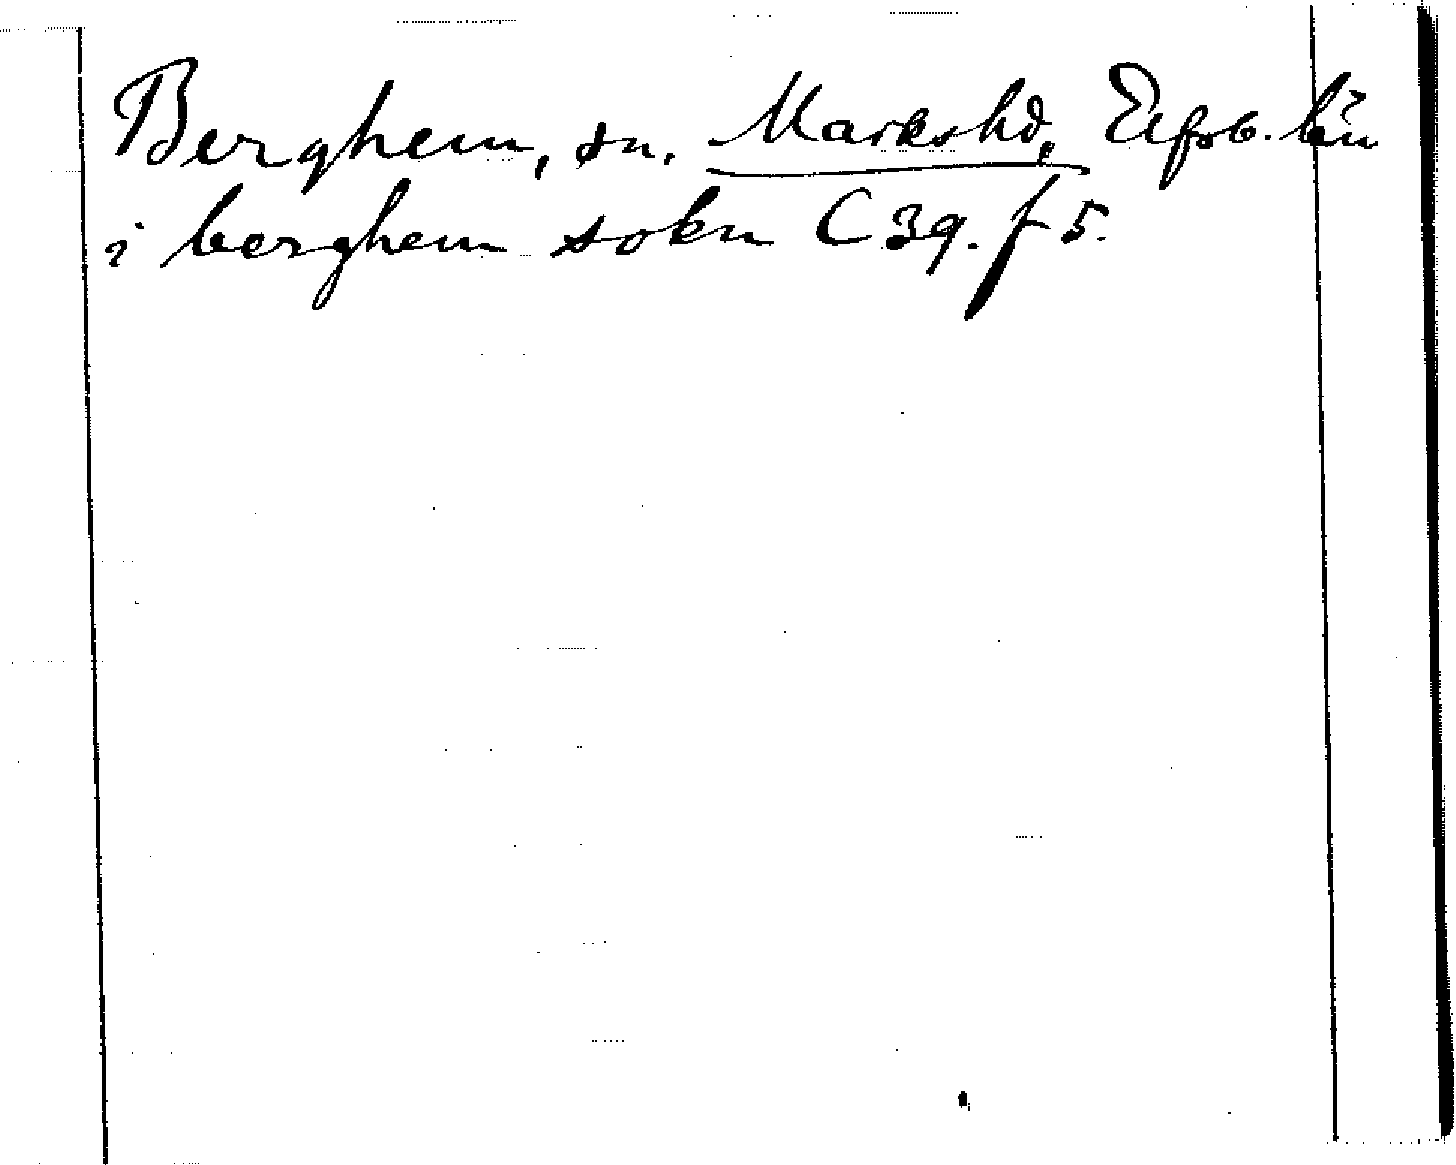 Berghem, sn. Markshd, Elfsb. län
i berghem sokn C 39. f 5.